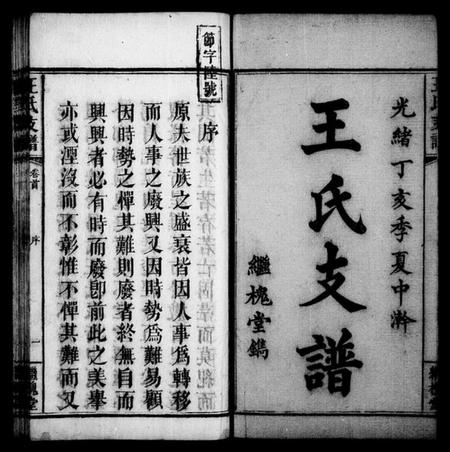 光緒丁亥季夏中澣
王氏支譜
繼槐堂鐫
節字陸號
序
原夫世族之盛衰皆因人事爲轉移
而人事之廢興又因時勢爲難易顧
因時勢之憚其難則廢者終無自而
興興者必有時而廢卽前此之美舉
亦或湮沒而不彰惟不憚其難而又
王氏支譜
卷首
序
一
繼槐堂